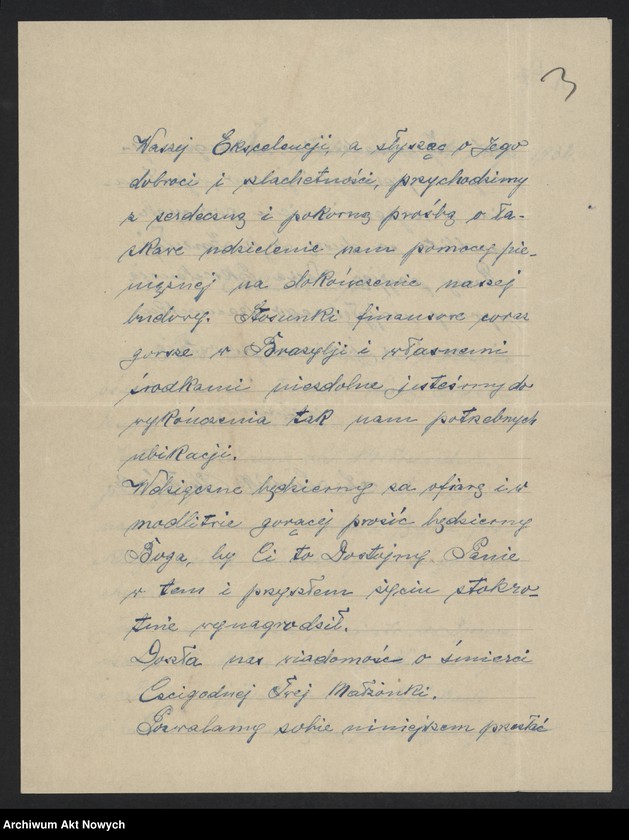 3
Waszej Ekscelencji, a słysząc o Jego
dobroci i szlachetności, przychodzimy
z serdeczną i pokorną prośbą o ła-
skawe udzielenie nam pomocy pie-
niężnej na dokończenie naszej
budowy. Stosunki finansowe coraz
gorsze w Brazylji i własnemi
środkami niezdolne jesteśmy do
wykończenia tak nam potrzebnych
ubikacji.
Wdzięczne będziemy za ofiarę i w
modlitwie gorącej prosić będziemy
Boga, by Ci to Dostojny Panie
w tem i przyszłem życiu stokro-
tnie wynagrodził.
Doszła nas wiadomość o śmierci
Czcigodnej Twej Małżonki.
Pozwalamy sobie niniejszem przesłać
Archiwum Akt Nowych